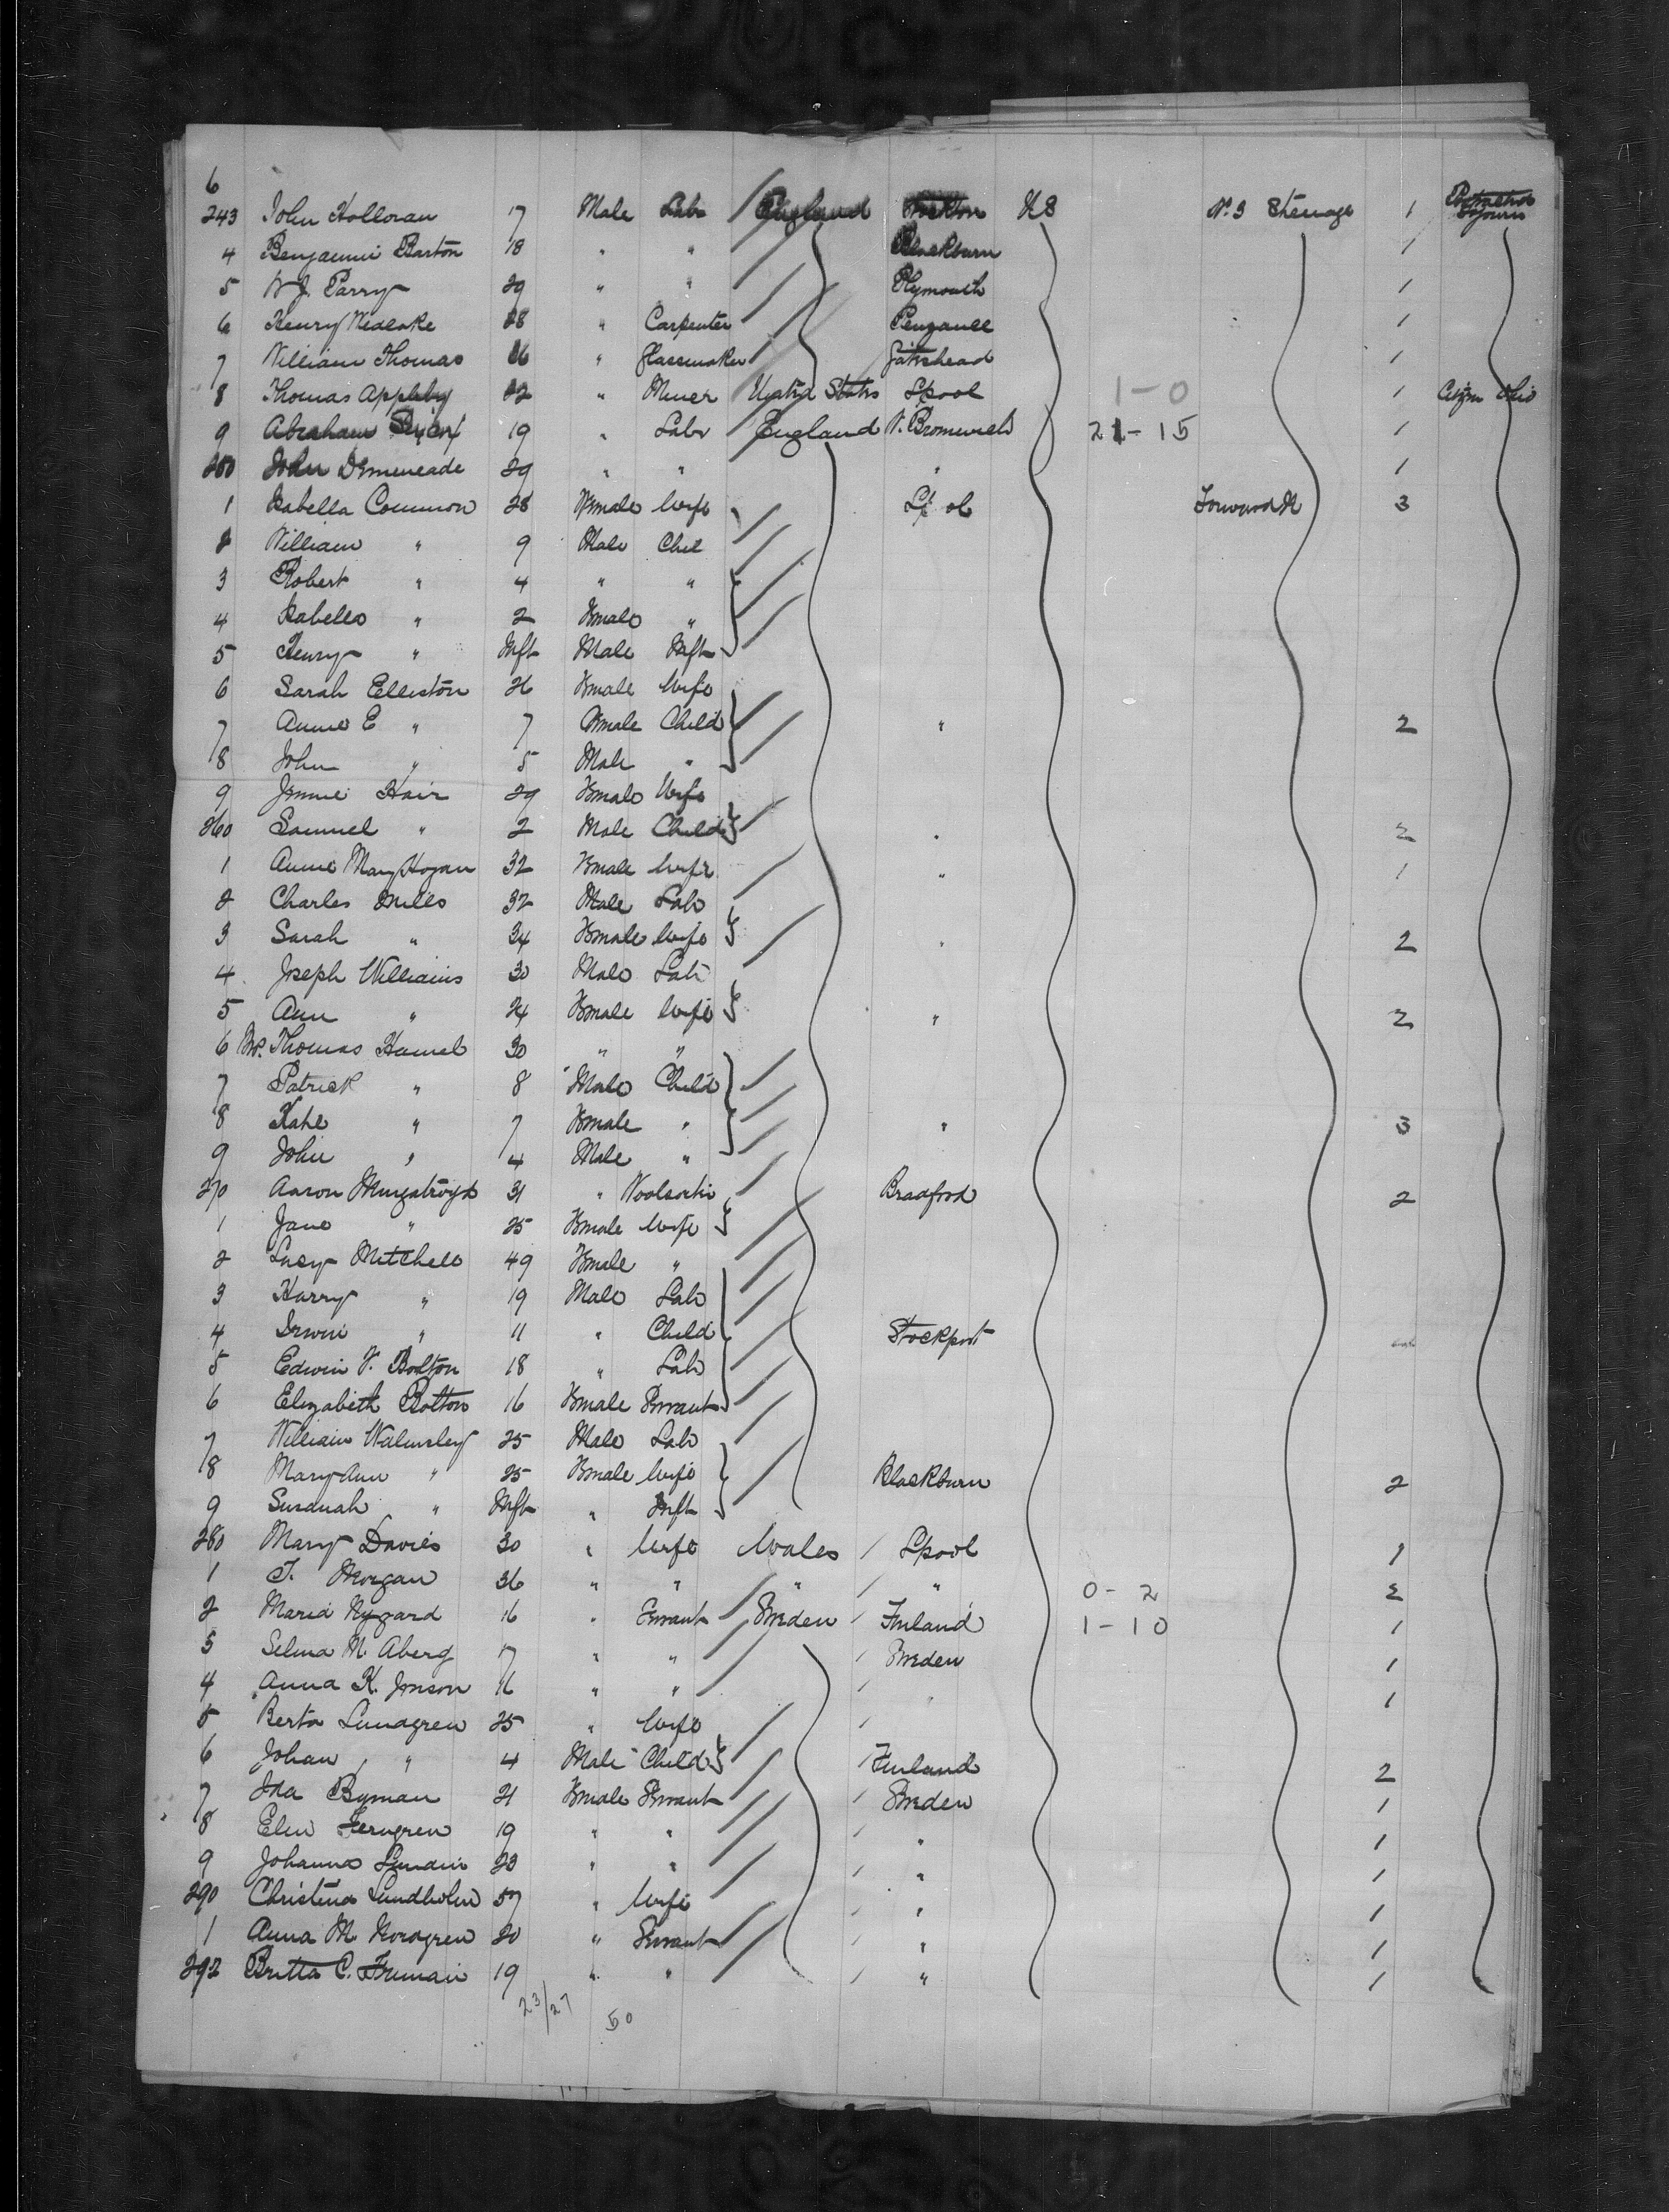 6
243 John Holloran 17 Male Labr England Stockton U S No. 3 Steerage 1 Protracted Sojourn
4 Benjamin Barton 18 " " Blackburn 1
5 W J. Parry 29 " " Plymouth 1
6 Henry Medlake 28 " Carpenter Penzance 1
7 William Thomas 26 " Glassmaker Gateshead 1
8 Thomas Appleby 22 " Miner United States Lpool 1-0 1 Citizen Ohio
9 Abraham 19 " Labr England W. Bromwich 21-15 1
250 John 29 " " " 1
1 Isabella Common 28 Female Wife Lpool Forward 3
2 William " 9 Male Chil
3 Robert " 4 " "
4 Isabella " 2 Female "
5 Henry " Inft Male Inft
6 Sarah Elliston 26 Female Wife
7 Annie E " 7 Female Child " 2
8 John " 5 Male "
9 Jennie Hair 29 Female Wife
260 Samuel " 2 Male Child " 2
1 Annie Mary Hogan 32 Female Wife " 1
2 Charles Mills 32 Male Lab
3 Sarah " 34 Female Wife " 2
4 Joseph Williams 30 Male Lab
5 Ann " 24 Female Wife " 2
6 Mrs. Thomas Hamel 30 " "
7 Patrick " 8 Male Child
8 Kate " 7 Female " " 3
9 John " 4 Male "
270 Aaron Murgatroyd 31 " Woolsorter Bradford 2
1 Jane " 25 Female Wife
2 Lucy Mitchell 49 Female "
3 Harry " 19 Male Lab
4 Irwin " 11 " Child Stockport
5 Edwin V. Bolton 18 " Lab
6 Elizabeth Bolton 16 Female Servant
7 William Walmsley 25 Male Lab
8 Mary Ann " 25 Female Wife Blackburn 2
9 Susanah " Inft " Inft
280 Mary Davies 30 " Wife Wales Lpool 1
1 T. Morgan 36 " " " " 0-2 2
2 Maria Nygard 16 " Servant Sweden Finland 1-10 1
3 Selma M. Aberg 17 " " Sweden 1
4 Anna K. Jonson 16 " " " 1
5 Berta Lundgren 25 " Wife
6 Johan " 4 Male Child Finland 2
7 Ida Byman 21 Female Servant Sweden 1
8 Elin Ferngren 19 " " " 1
9 Johanna Lundin 23 " " " 1
290 Christina Lundholm 57 " Wife " 1
1 Anna M. Nordgren 20 " Servant " 1
292 Britta C. 19 " " " 1
23/27 50